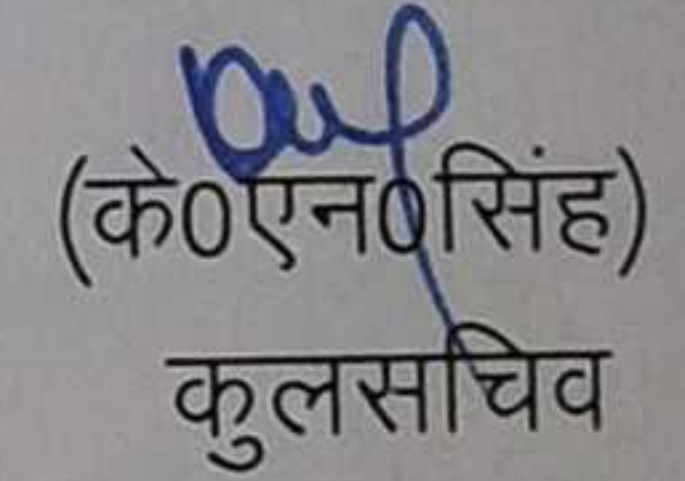 (के0एन0सिंह)
कुलसचिव